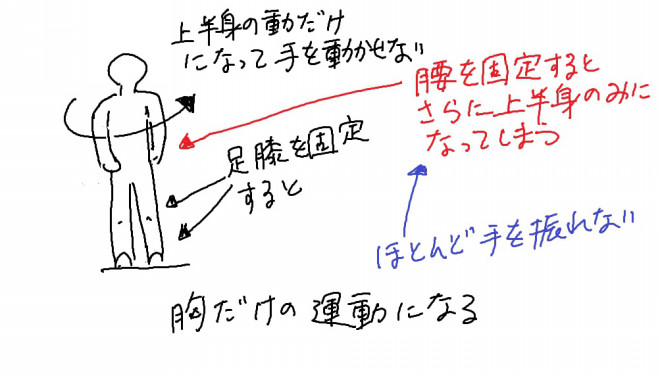 上半身の動だけ
になって手を動かせない
腰を固定すると
さらに上半身のみに
なってしまつ
足膝を固定
すると
ほとんど手を振れない
胸だけの運動になる